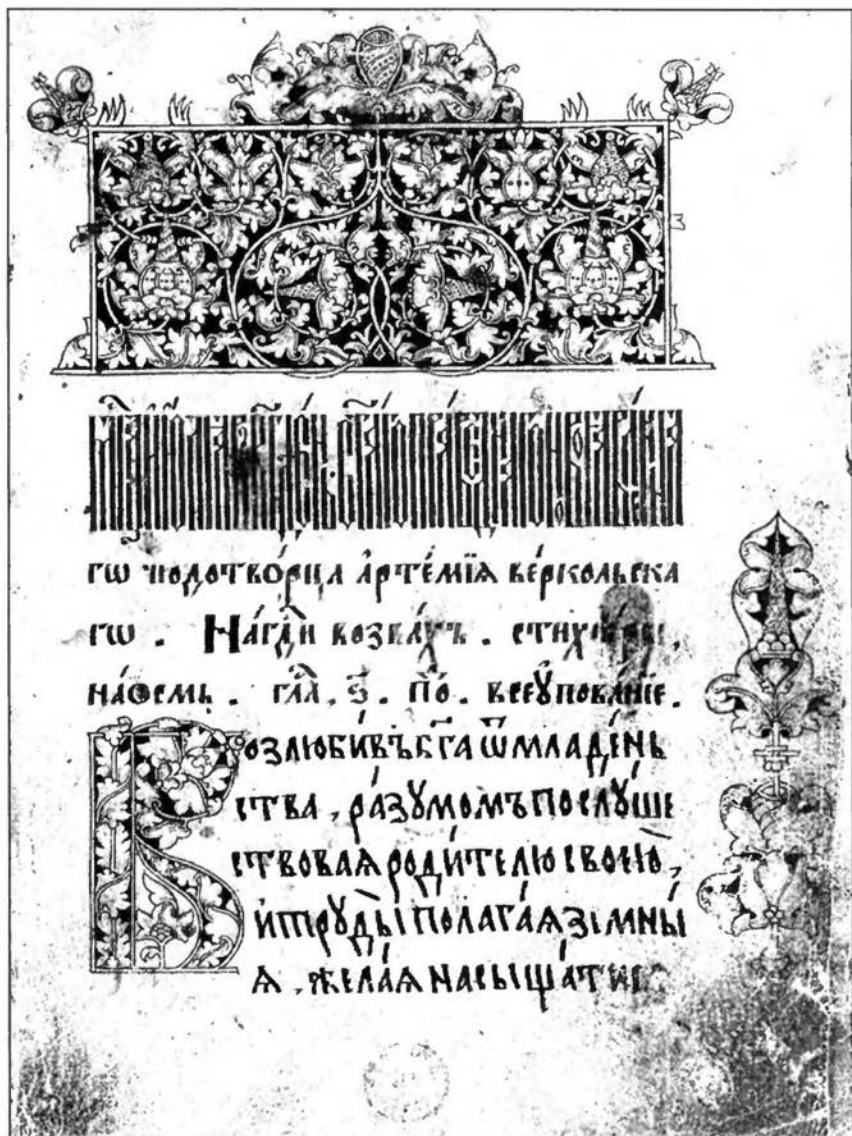 гѡ чюдотво́рца а҆рте́мїѧ ве́ркольска
гѡ . На́ гди возва́хъ . стихи́ры ,
на́ ѳемь . гла́ . ѕ҃ . по́ . все ᲂупова́нїе .
Возлюби́въ бг҃а ѿ младе́нь
ства , ра́зꙋмомъ послꙋ́ше
ствоваѧ роди́телю своею̀ ,
и҆ трꙋды̀ полага́ѧ зїмны́
ѧ . жела́ѧ насыща́тис